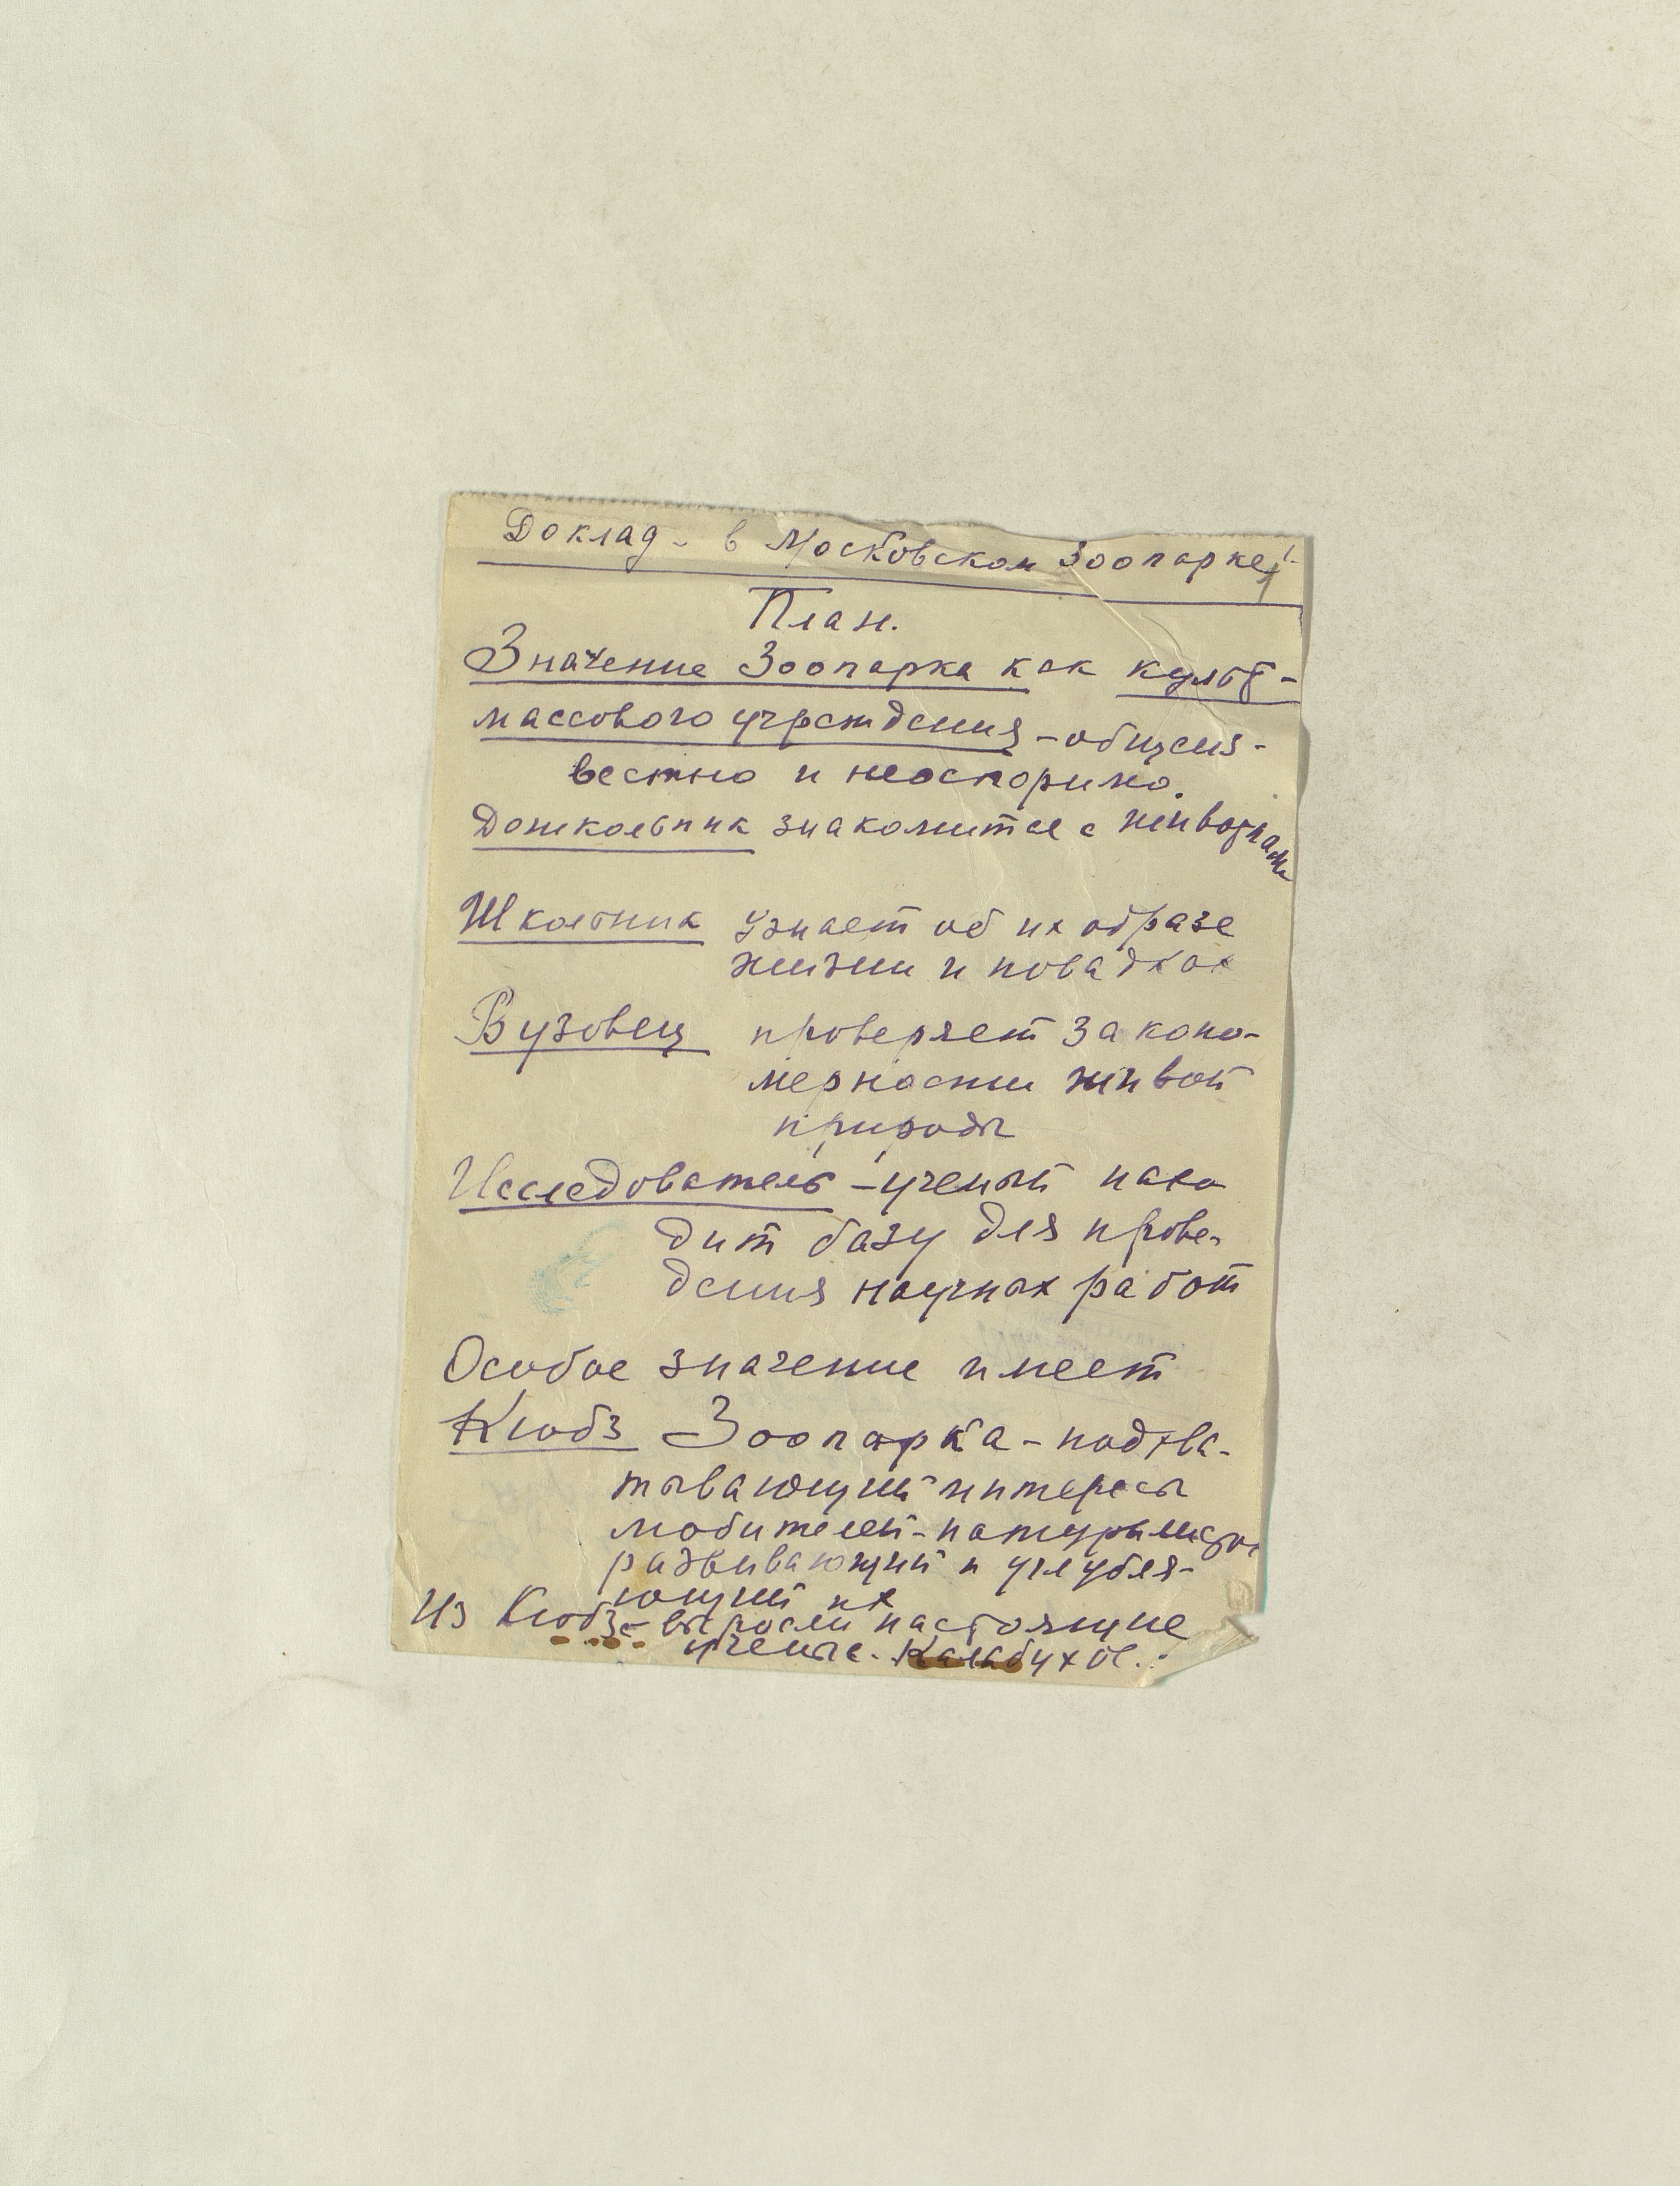 Доклад - в Московском Зоопарке
План.
Значение Зоопарка как культ-
массового учреждения - общеиз-
вестно и неоспоримо.
Дошкольник знакомится с животными
Школьник узнает об их образе
жизни и повадках
Вузовец проверяет законо-
мерности живой
природы
Исследователь - ученый нахо
дит базу для прове-
дения научных работ
Особое значение имеет
Кюбз Зоопарка - подхва-
тывающий интересы
любителей - натуралистов
развивающий и углубля-
ющий их
Из Кюбза - выросли настоящие
ученые. Калабухов.